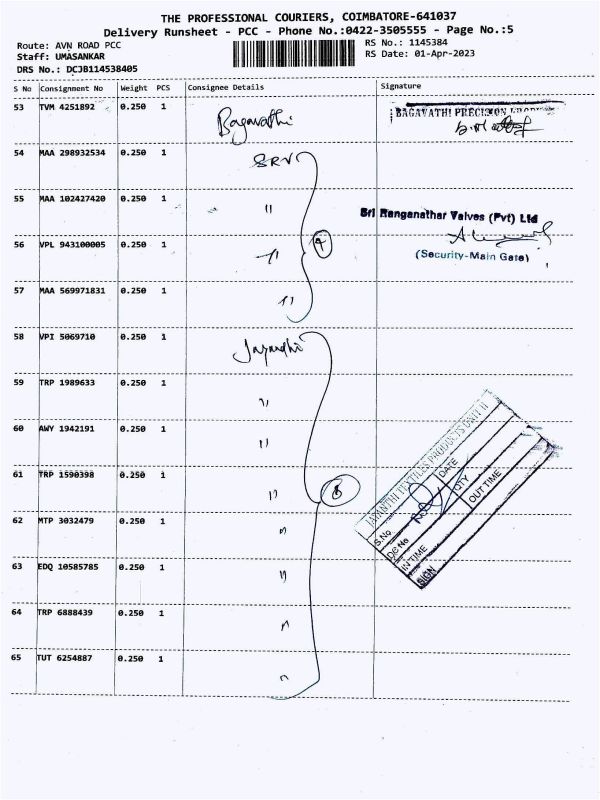 THE PROFESSIONAL COURIERS, COIMBATORE-641037
Delivery Runsheet - PCC - Phone No.:0422-3505555 - Page No.:5
Route: AVN ROAD PCC
Staff: UMASANKAR
DRS No.: DCJB114538405
RS No.: 1145384
RS Date: 01-Apr-2023
S No Consignment No Weight PCS Consignee Details Signature
53 TVM 4251892 0.250 1 Bagavathi
BAGAVATHI PRECISION
54 MAA 298932534 0.250 1 SRV
55 MAA 102427420 0.250 1 "
Sri Ranganathar Valves (Pvt) Ltd
56 VPL 943100005 0.250 1 " 4
(Security-Main Gate)
57 MAA 569971831 0.250 1 "
58 VPI 5069710 0.250 1 Jayandhi
59 TRP 1989633 0.250 1 "
60 AWY 1942191 0.250 1 "
61 TRP 1590398 0.250 1 " 8
62 MTP 3032479 0.250 1 "
63 EDQ 10585785 0.250 1 "
64 TRP 6888439 0.250 1 "
65 TUT 6254887 0.250 1 "
JAYANTHI TEXTILES PRODUCTS UNIT II
S.No DATE
DC No QTY
IN TIME OUT TIME
SIGN